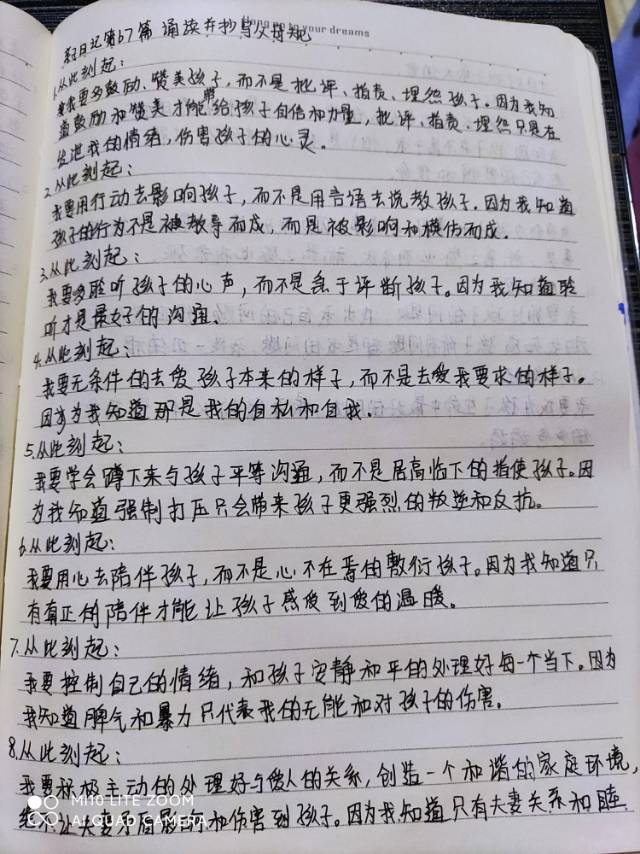 Hang on to your dreams
来日记第67篇 诵读并抄写父母规
1.从此刻起:
我要多鼓励、赞美孩子,而不是批评、指责、埋怨孩子。因为我知
道鼓励和赞美才能带给孩子自信和力量,批评、指责、埋怨只是在
发泄我的情绪,伤害孩子的心灵。
2.从此刻起:
我要用行动去影响孩子,而不是用言语去说教孩子。因为我知道
孩子的行为不是被教导而成,而是被影响和模仿而成。
3.从此刻起:
我要多聆听孩子的心声,而不是急于评断孩子。因为我知道聆
听才是最好的沟通。
4.从此刻起:
我要无条件的去爱孩子本来的样子,而不是去爱我要求的样子。
因为我知道那是我的自私和自我.
5.从此刻起:
我要学会蹲下来与孩子平等沟通,而不是居高临下的指使孩子。因
为我知道强制打压只会带来孩子更强烈的叛逆和反抗。
6.从此刻起:
我要用心去陪伴孩子,而不是心不在焉的敷衍孩子。因为我知道只
有真正的陪伴才能让孩子感受到爱的温暖。
7.从此刻起:
我要控制自己的情绪,和孩子安静和平的处理好每一个当下。因为
我知道脾气和暴力只代表我的无能和对孩子的伤害。
8.从此刻起:
我要积极主动的处理好与爱人的关系,创造一个和谐的家庭环境,
绝不让夫妻矛盾影响和伤害到孩子。因为我知道只有夫妻关系和睦
MI 10 LITE ZOOM
AI QUAD CAMERA